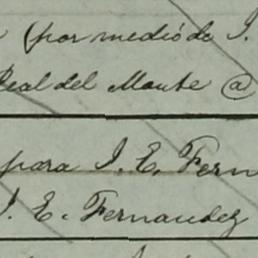 (por medio de I.
Real del Monte @
para I. E. Fern
I. E. Fernandez